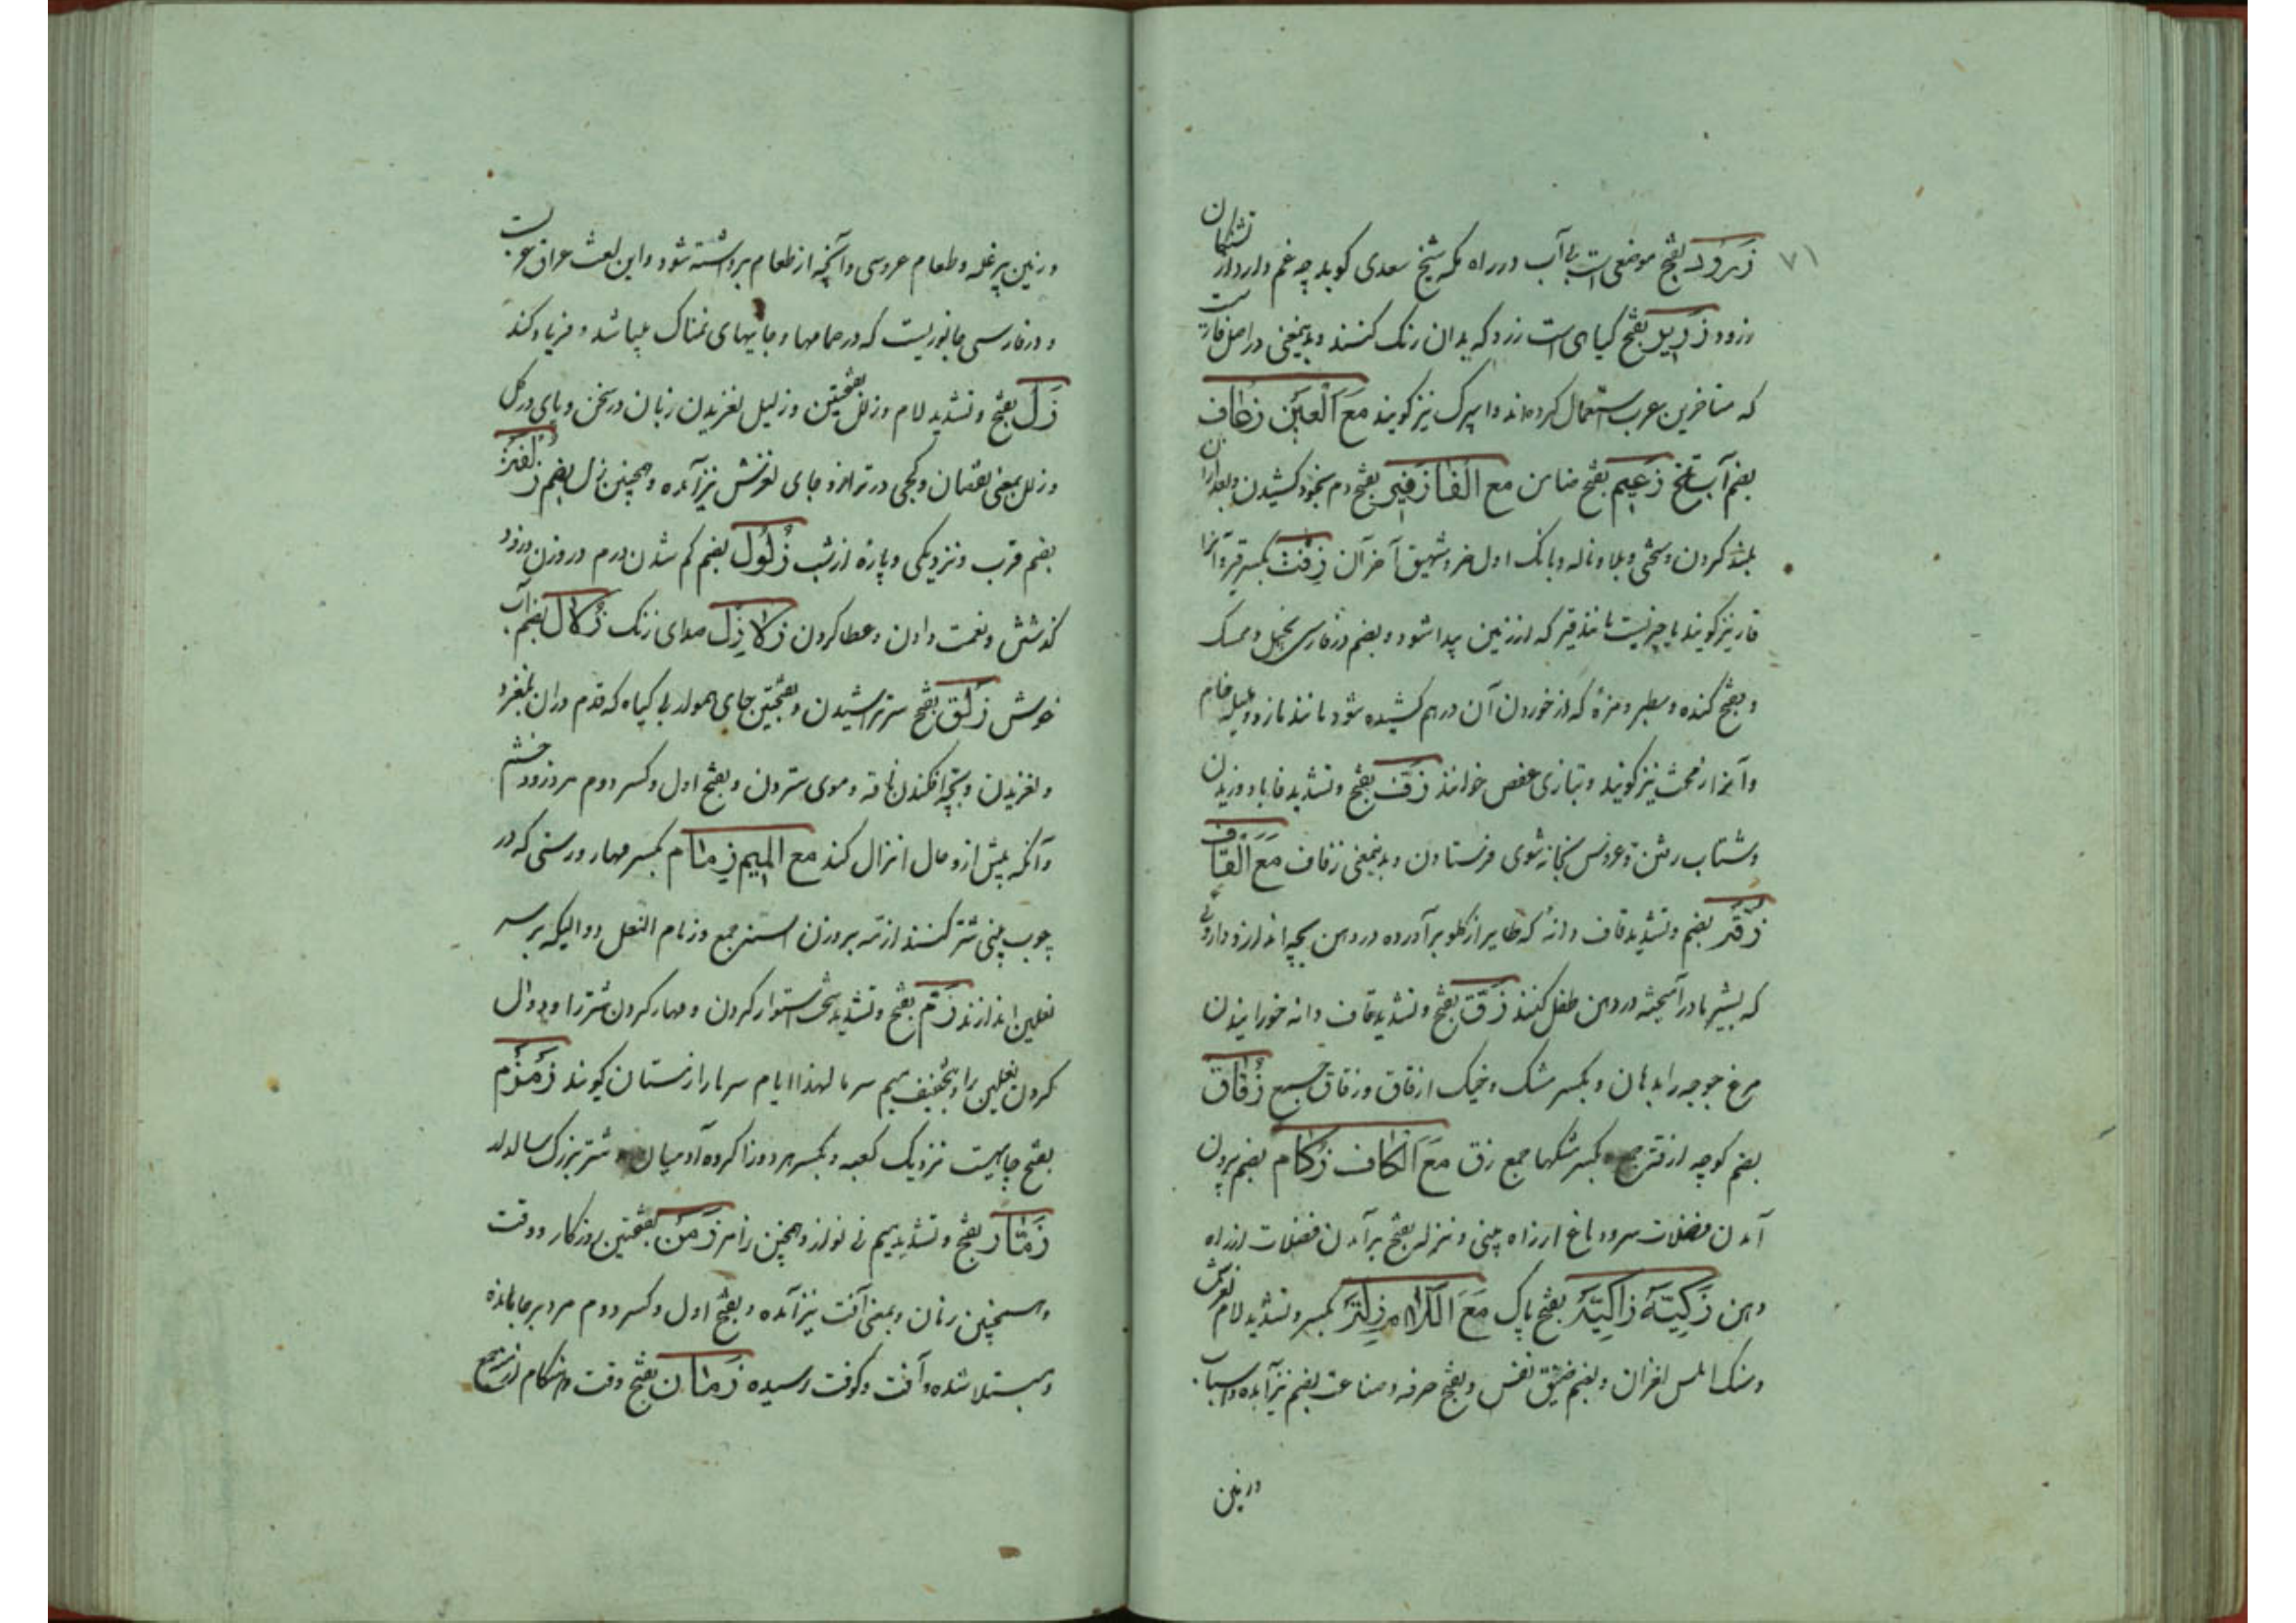 ۷۱
زرود بفتح موضعی است بی آب در راه مکه شیخ سعدی کوید چه غم دارد از تشنکان
زرود زریر بفتح کیاهی است زرد که بدان رنک کنند و بدینمعنی در اصل فارسیست
که متاخرین عرب استعمال کرده‌اند و اسپرک نیز کویند مع العین زعاف
بضم آب تلخ زعیم بفتح ضامن مع الفا زفیر بفتح دم بخود کشیدن و بعد ازان
بلند کردن و سختی و بلا و ناله و بانک اول خر و شهیق آخر آن زفت بکسر قیر و آنرا
قار نیز کویند یا چیزیست مانند قیر که از زمین پیدا شود و بضم در فارسی بخیل و ممسک
و بفتح کنده و سطبر و مزهٔ که از خوردن آن درهم کشیده شود مانند مازو و هلیله خام
و آنرا زمخت نیز کویند و بتازی عفص خوانند زف بفتح و تشدید فا باد وزیدن
و شتاب رفتن و عروس بخانه شوی فرستادن و بدینمعنی زفاف مع القاف
زقه بضم و تشدید قاف دانهٔ که طایر از کلو برآورده در دهن بچه اندازد و داروئی
که بشیر مادر آمیخته در دهن طفل کنند زق بفتح و تشدید قاف دانه خورانیدن
مرغ جوجه را بدهان و بکسر مشک و خیک ازقاق و زقاق جمیع زقاق
بضم کوچه ازقه جمع و بکسر مشکها جمع زق مع الکاف زکام بضم بیرون
آمدن فضلات سر و دماغ از راه بینی و نزله بفتح برآمدن فضلات از راه
دهن زکیة زاکیة بفتح پاک مع اللام زلة بکسر و تشدید لام لغزش
و سنک املس لغزان و بضم ضیق نفس و بفتح حرفه و صناعت بضم نیز آمده و اسباب
در زمین
و زمین پر غله و طعام عروسی و آنچه از طعام برداشته شود و این لغت عراق عربست
و در فارسی جانوریست که در حمامها و جایهای نمناک میباشد و فریاد کند
زل بفتح و تشدید لام و زلل بفتحتین و زلیل لغزیدن زبان در سخن و پای در کل
و زلل بمعنی نقصان و کجی در ترازو و جای لغزش نیز آمده و همچنین زال بضم زلفة
بضم قرب و نزدیکی و پاره از شب زلول بضم کم شدن درم در وزن و زود
کذشتن و نعمت دادن و عطا کردن زلازل صدای زنک زلال بضم آب
خوش زلق بفتح سر تراشیدن و بفتحتین جای هموار بی کیاه که قدم دران بلغزد
و لغزیدن و بچه افکندن ناقه و موی ستردن و بفتح اول و کسر دوم مرد زود خشم
و آنکه پیش از دخال انزال کند مع المیم زمام بکسر مهار و رسنی که در
چوب بینی شتر کنند ازمه بر وزن اسنه جمع و زمام النعل دوالیکه بر سر
نعلین اندازند زم بفتح و تشدید سخت استوار کردن و مهار کردن شتر را و دوال
کردن نعلین را و بتخفیف میم سرما لهذا ایام سرما را زمستان کویند زمزم
بفتح چاهیست نزدیک کعبه و بکسر هر دو زا کروه آدمیان و شتر بزرک سالدار
زمار بفتح و تشدید میم نی نواز و همچنین زامر زمن بفتحتین روزکار و وقت
و همچنین زمان و بمعنی آفت نیز آمده و بفتح اول و کسر دوم مرد برجا مانده
و مبتلا شده و آفت و کوفت رسیده زمان بفتح وقت و هنکام ازمنه جمع